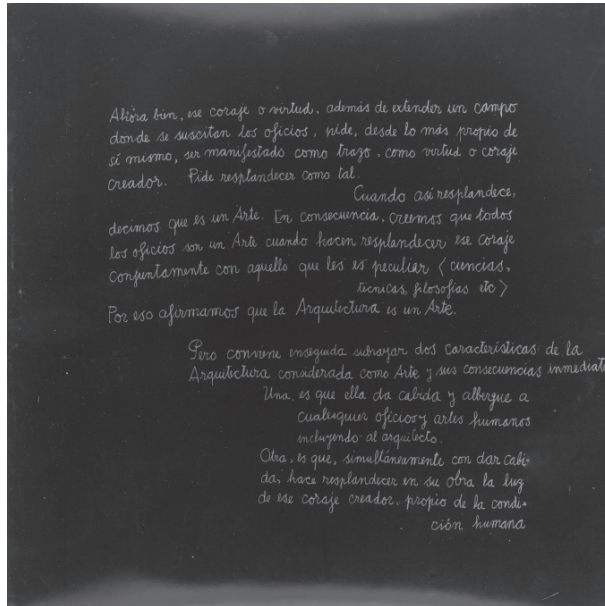 Ahora bien, ese coraje o virtud, además de extender un campo
donde se suscitan los oficios, pide, desde lo más propio de
sí mismo, ser manifestado como trazo, como virtud o coraje
creador. Pide resplandecer como tal.
Cuando así resplandece,
decimos que es un Arte. En consecuencia, creemos que todos
los oficios son un Arte cuando hacen resplandecer ese coraje
conjuntamente con aquello que les es peculiar (ciencias,
técnicas, filosofías etc)
Por eso afirmamos que la Arquitectura es un Arte.
Pero conviene enseguida subrayar dos características de la
Arquitectura considerada como Arte y sus consecuencias inmediat
Una, es que ella da cabida y albergue a
cualesquier oficios y artes humanos
incluyendo al arquitecto.
Otra, es que, simultáneamente con dar cabi-
da, hace resplandecer en su obra la luz
de ese coraje creador, propio de la condi-
ción humana